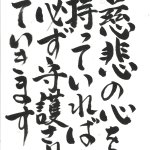 慈悲の心を
持っていれば
必ず守護され
ていきます